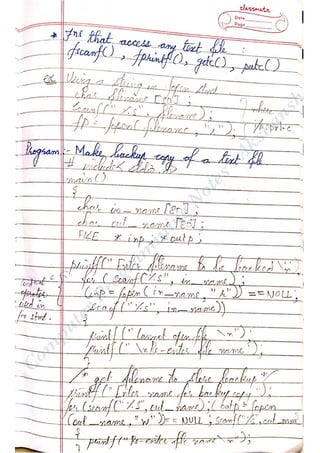 classmate
Date
Page
* Fns that access any text file :
fscanf() , fprintf() , getc() , putc()
Ex Using a string in fopen stmt
char filename [80] ;
scanf(" %s", filename) ;
fp = fopen( filename , "r") ;
Program :- Make backup copy of a text file.
# include < stdio.h>
main()
{
char in_name [80] ;
char out_name [80] ;
FILE * inp , * outp ;
printf(" Enter filename to be backed \n") ;
for ( scanf("%s", in_name) ;
(inp = fopen (in_name, "r")) == NULL ;
scanf ("%s", in_name))
used in
for stmt.
{
printf (" Cannot open file \n") ;
printf (" \n Re-enter file name ") ;
}
/* get filename to store backup */
printf(" Enter name for backup copy ") ;
for (scanf("%s", out_name) ; ( outp = fopen
(out_name, "w")) == NULL ; scanf("%s", out_name
{
printf("Re-enter file name \n") ;
}